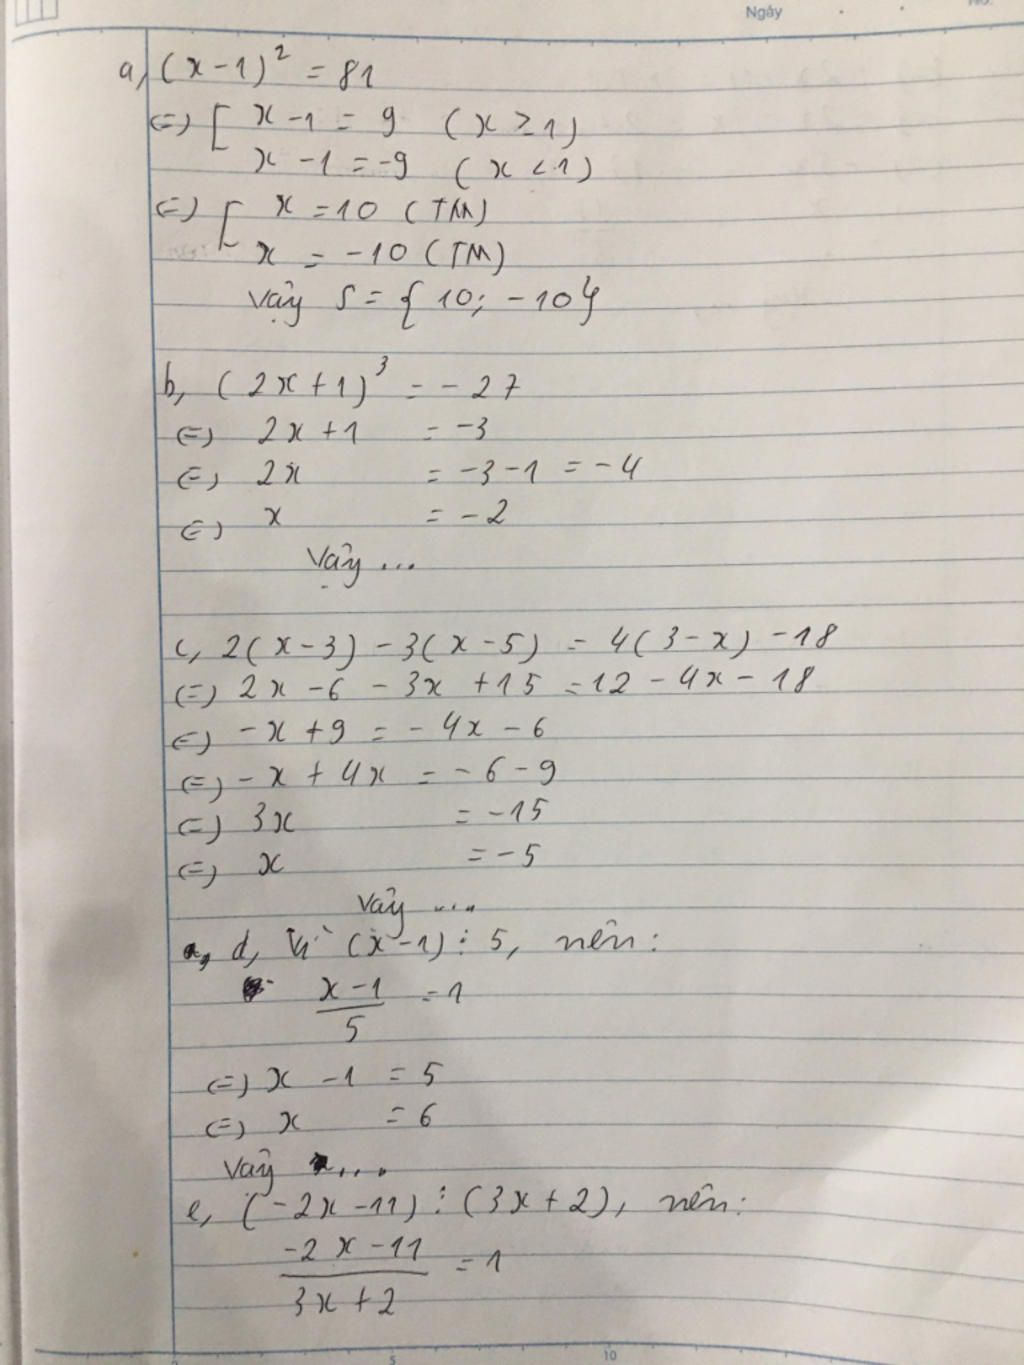 Ngày
a, (x-1)² = 81
(=) [ x -1 = 9 (x ≥ 1)
x -1 = -9 (x < 1)
(=) [ x = 10 (TM)
x = -10 (TM)
Vậy S = { 10; -10}
b, (2x+1)³ = -27
(=) 2x +1 = -3
(=) 2x = -3-1 = -4
(=) x = -2
Vậy ...
c, 2(x-3) -3(x-5) = 4(3-x) -18
(=) 2x -6 - 3x +15 =12 - 4x - 18
(=) -x +9 = -4x - 6
(=) -x + 4x = -6 -9
(=) 3x = -15
(=) x = -5
Vậy ....
d, Vì (x-1) ⋮ 5, nên:
x-1
— = 1
5
(=) x -1 = 5
(=) x = 6
Vậy ....
e, (-2x -11) ⋮ (3x+2), nên:
-2x -11
— = 1
3x +2
5 10